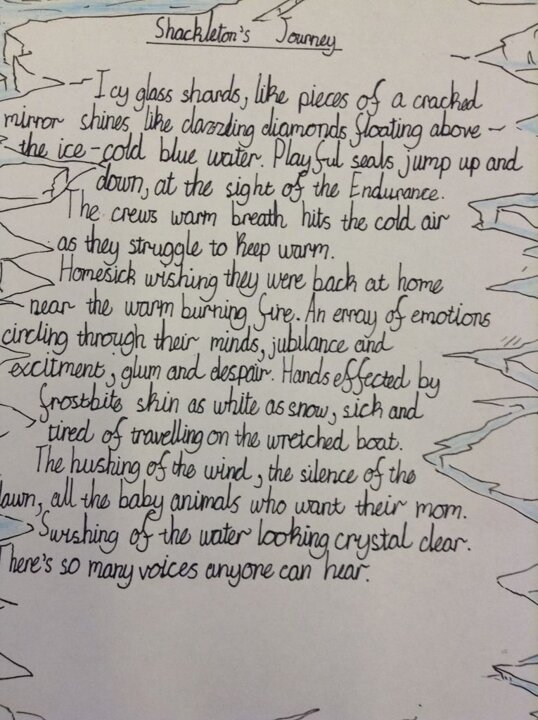 Shackleton's Journey
Icy glass shards, like pieces of a cracked
mirror shines like dazzling diamonds floating above -
the ice-cold blue water. Playful seals jump up and
down, at the sight of the Endurance.
The crews warm breath hits the cold air
as they struggle to keep warm.
Homesick wishing they were back at home
near the warm burning fire. An erray of emotions
circling through their minds, jubilance and
excitment, glum and despair. Hands effected by
frostbite skin as white as snow, sick and
tired of travelling on the wretched boat.
The hushing of the wind, the silence of the
dawn, all the baby animals who want their mom.
Swishing of the water looking crystal clear.
There's so many voices anyone can hear.